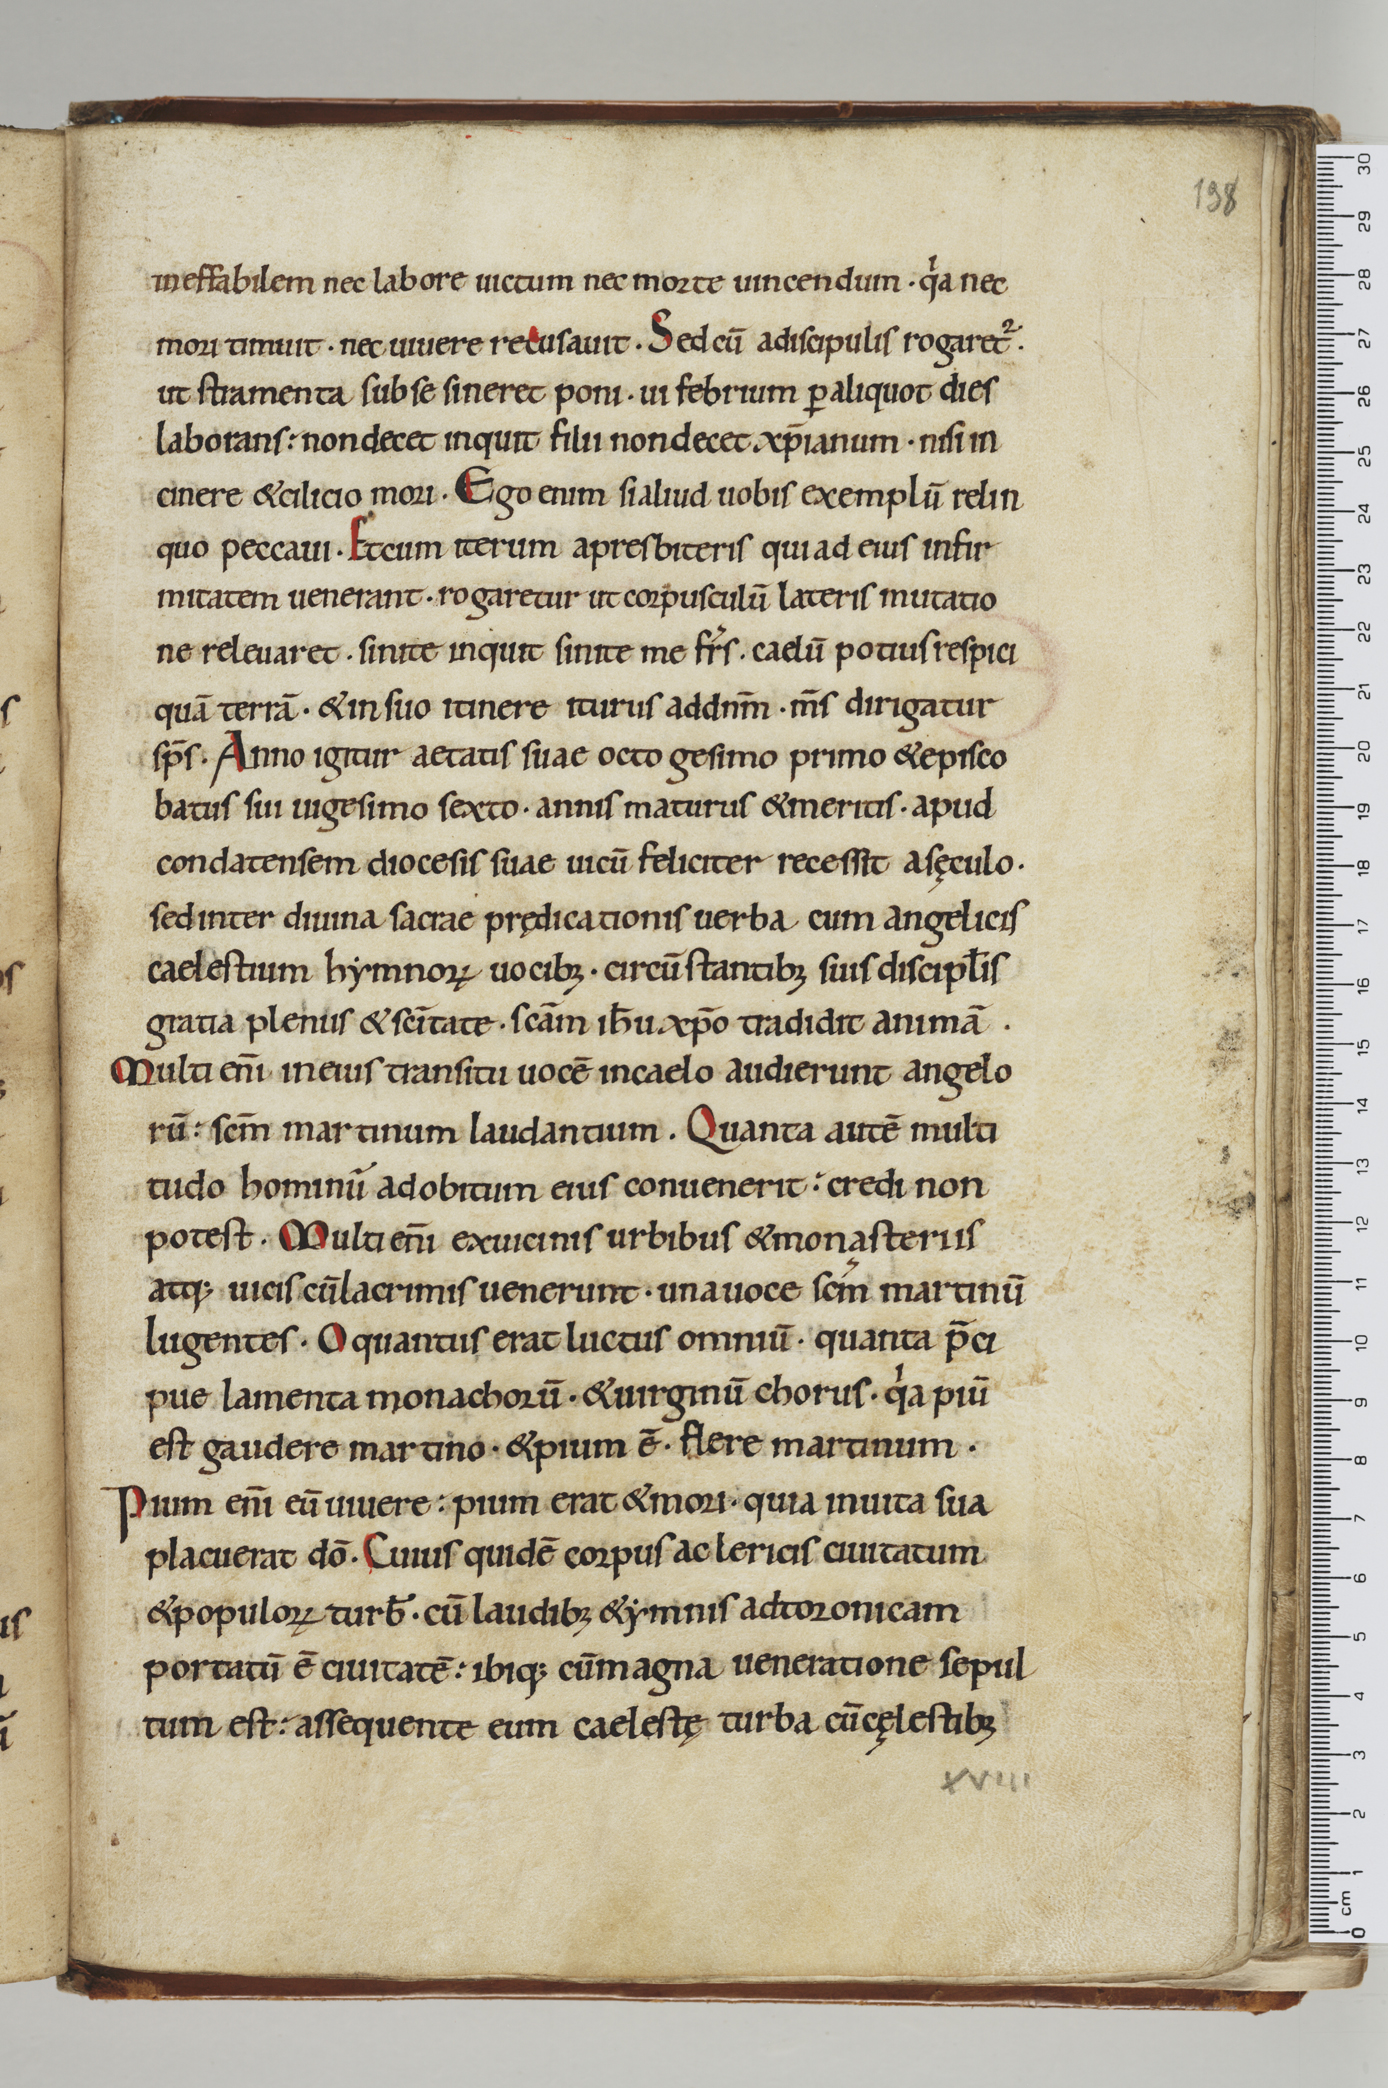 198
ineffabilem nec labore uictum nec morte uincendum · q̍a nec
mori timuit · nec uiuere recusauit · Sed cū adiscipulis rogaret᷑ ·
ut stramenta subse sineret poni · ui febrium ꝑ aliquot dies
laborans : nondecet inquit filii nondecet xp̄ianum · nisi in
cinere & cilicio mori · Ego enim si aliud uobis exemplū relin
quo peccaui · Et cum iterum apresbiteris qui ad eius infir
mitatem uenerant · rogaretur ut corpusculū lateris mutatio
ne releuaret · sinite inquit sinite me fr̄s · caelū potius respici
quā terrā · & in suo itinere iturus addnm̄ · m̄s dirigatur
sp̄s · Anno igitur aetatis suae octogesimo primo & episco
batus sui uigesimo sexto · annis maturus & meritis · apud
condatensem diocesis suae uicū feliciter recessit asęculo ·
sed inter diuina sacrae prędicationis uerba cum angelicis
caelestium hẏmnoꝝ uocibꝫ · circū stantibꝫ suis discipl̄is
gratia plenus & sc̄itate · scām ih̄u xp̄o tradidit animā ·
Multi eni̅ ineius transitu uocē incaelo audierunt angelo
rū : scm̄ martinum laudantium · Quanta autē multi
tudo hominū adobitum eius conuenerit : credi non
potest · Multi eni̅ exuicinis urbibus & monasteriis
atqꝫ uicis cū lacrimis uenerunt · unauoce scm̄ martinū
lugentes · O quantus erat luctus omniū · quanta p̄ci
pue lamenta monachorū · & uirginū chorus · q̍a piū
est gaudere martino · & pium ē · flere martinum ·
Pium eni̅ eū uiuere : pium erat & mori · quia inuita sua
placuerat dō · Cuius quidē corpus aclericis ciuitatum
& populoꝝ turb̄ · cū laudibꝫ & ẏmnis adtoronicam
portatū ē ciuitatē : ibiqꝫ cū magna ueneratione sepul
tum est : assequente eum caelestę turba cū cęlestibꝫ
XVIII